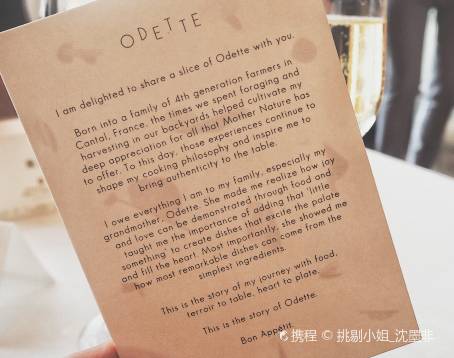 ODETTE
I am delighted to share a slice of Odette with you.
Born into a family of 4th generation farmers in
Cantal, France, the times we spent foraging and
harvesting in our backyards helped cultivate my
deep appreciation for all that Mother Nature has
to offer. To this day, those experiences continue to
shape my cooking philosophy and inspire me to
bring authenticity to the table.
I owe everything I am to my family, especially my
grandmother, Odette. She made me realize how joy
and love can be demonstrated through food and
taught me the importance of adding that 'little
something' to create dishes that excite the palate
and fill the heart. Most importantly, she showed me
how most remarkable dishes can come from the
simplest ingredients.
This is the story of my journey with food,
terroir to table, heart to plate.
This is the story of Odette.
Bon Appétit.
携程 © 挑剔小姐_沈墨非